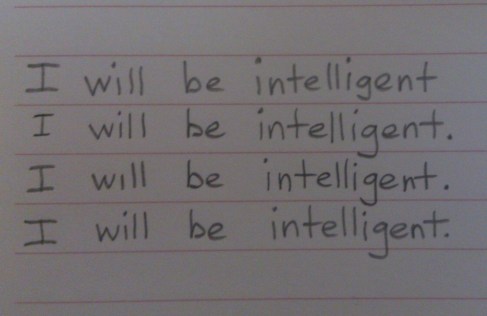 I will be intelligent
I will be intelligent.
I will be intelligent.
I will be intelligent.